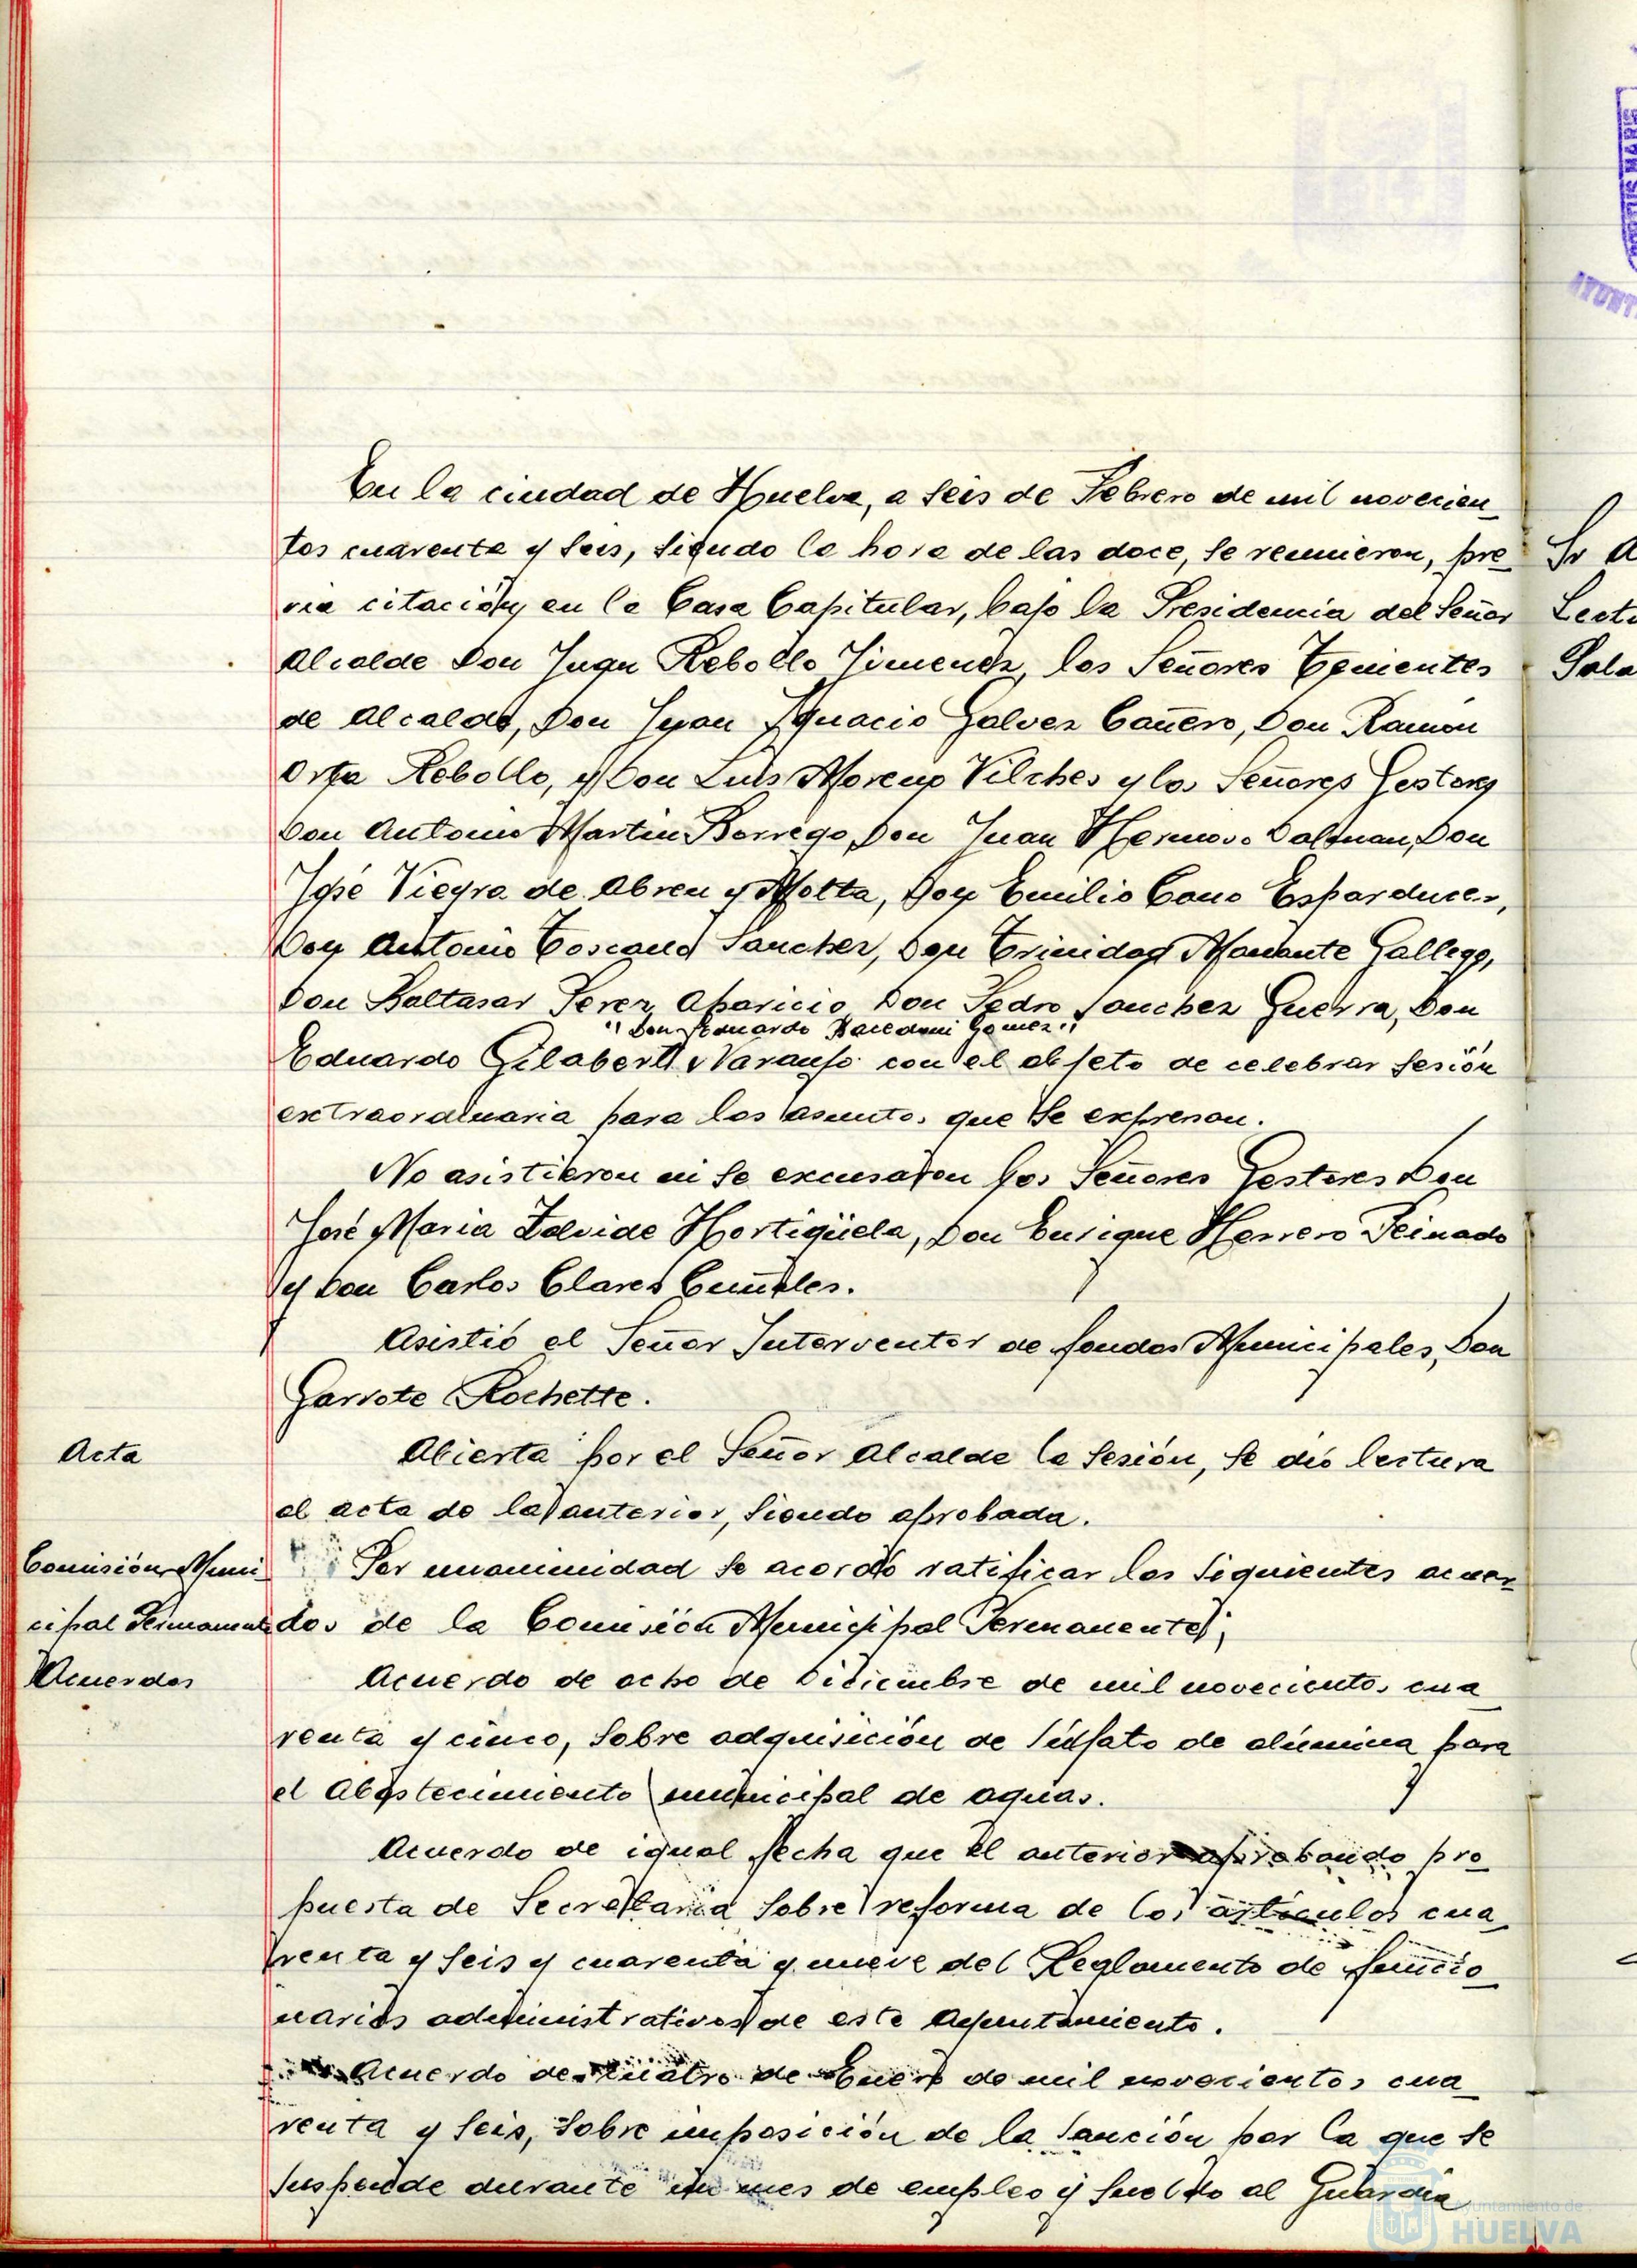 En la ciudad de Huelva, a seis de Febrero de mil novecien_
tos cuarenta y seis, siendo la hora de las doce, se reunieron, pre_
via citación, en la Casa Capitular, bajo la Presidencia del Señor
Alcalde Don Juan Rebollo Jimenez, los Señores Tenientes
de Alcalde, Don Juan Ignacio Galvez Cañero, Don Ramón
Orta Rebollo, y Don Luis Moreno Vilches y los Señores Gestores
Don Antonio Martin Borrego, Don Juan Hermoso Dalman, Don
José Vieyra de Abreu y Motta, Don Emilio Cano Esparducer,
Don Antonio Toscano Sanchez, Don Trinidad Gallego,
Don Baltasar Perez Aparicio, Don Pedro Sanchez Guerra, Don
"Don Eduardo Gomez"
Eduardo Gilabert Naranjo con el objeto de celebrar sesión
extraordinaria para los asuntos que se expresan.
No asistieron ni se excusaron los Señores Gestores Don
José Maria Zalvide Hortigüela, Don Enrique Herrero Peinado
y Don Carlos Clares
Asistió el Señor Interventor de fondos Municipales, Don
Garrote Rochette.
Acta
Abierta por el Señor Alcalde la sesión, se dió lectura
al acta de la anterior, siendo aprobada.
Comisión Muni_
cipal Permanente
Acuerdos
Por unanimidad se acordó ratificar los siguientes acuer_
dos de la Comisión Municipal Permanente;
Acuerdo de ocho de Diciembre de mil novecientos cua_
renta y cinco, sobre adquisición de súlfato de alúmina para
el Abastecimiento municipal de aguas.
Acuerdo de igual fecha que el anterior aprobando pro_
puesta de Secretaría sobre reforma de los artículos cua_
renta y seis y cuarenta y nueve del Reglamento de funcio_
narios administrativos de este Ayuntamiento.
Acuerdo de cuatro de Enero de mil novecientos cua_
renta y seis, sobre imposición de la sanción por la que se
suspende durante un mes de empleo y sueldo al Guardia
Sr A
Lectu
Pala
PORTUS MARIS
AYUNT
Ayuntamiento de
HUELVA